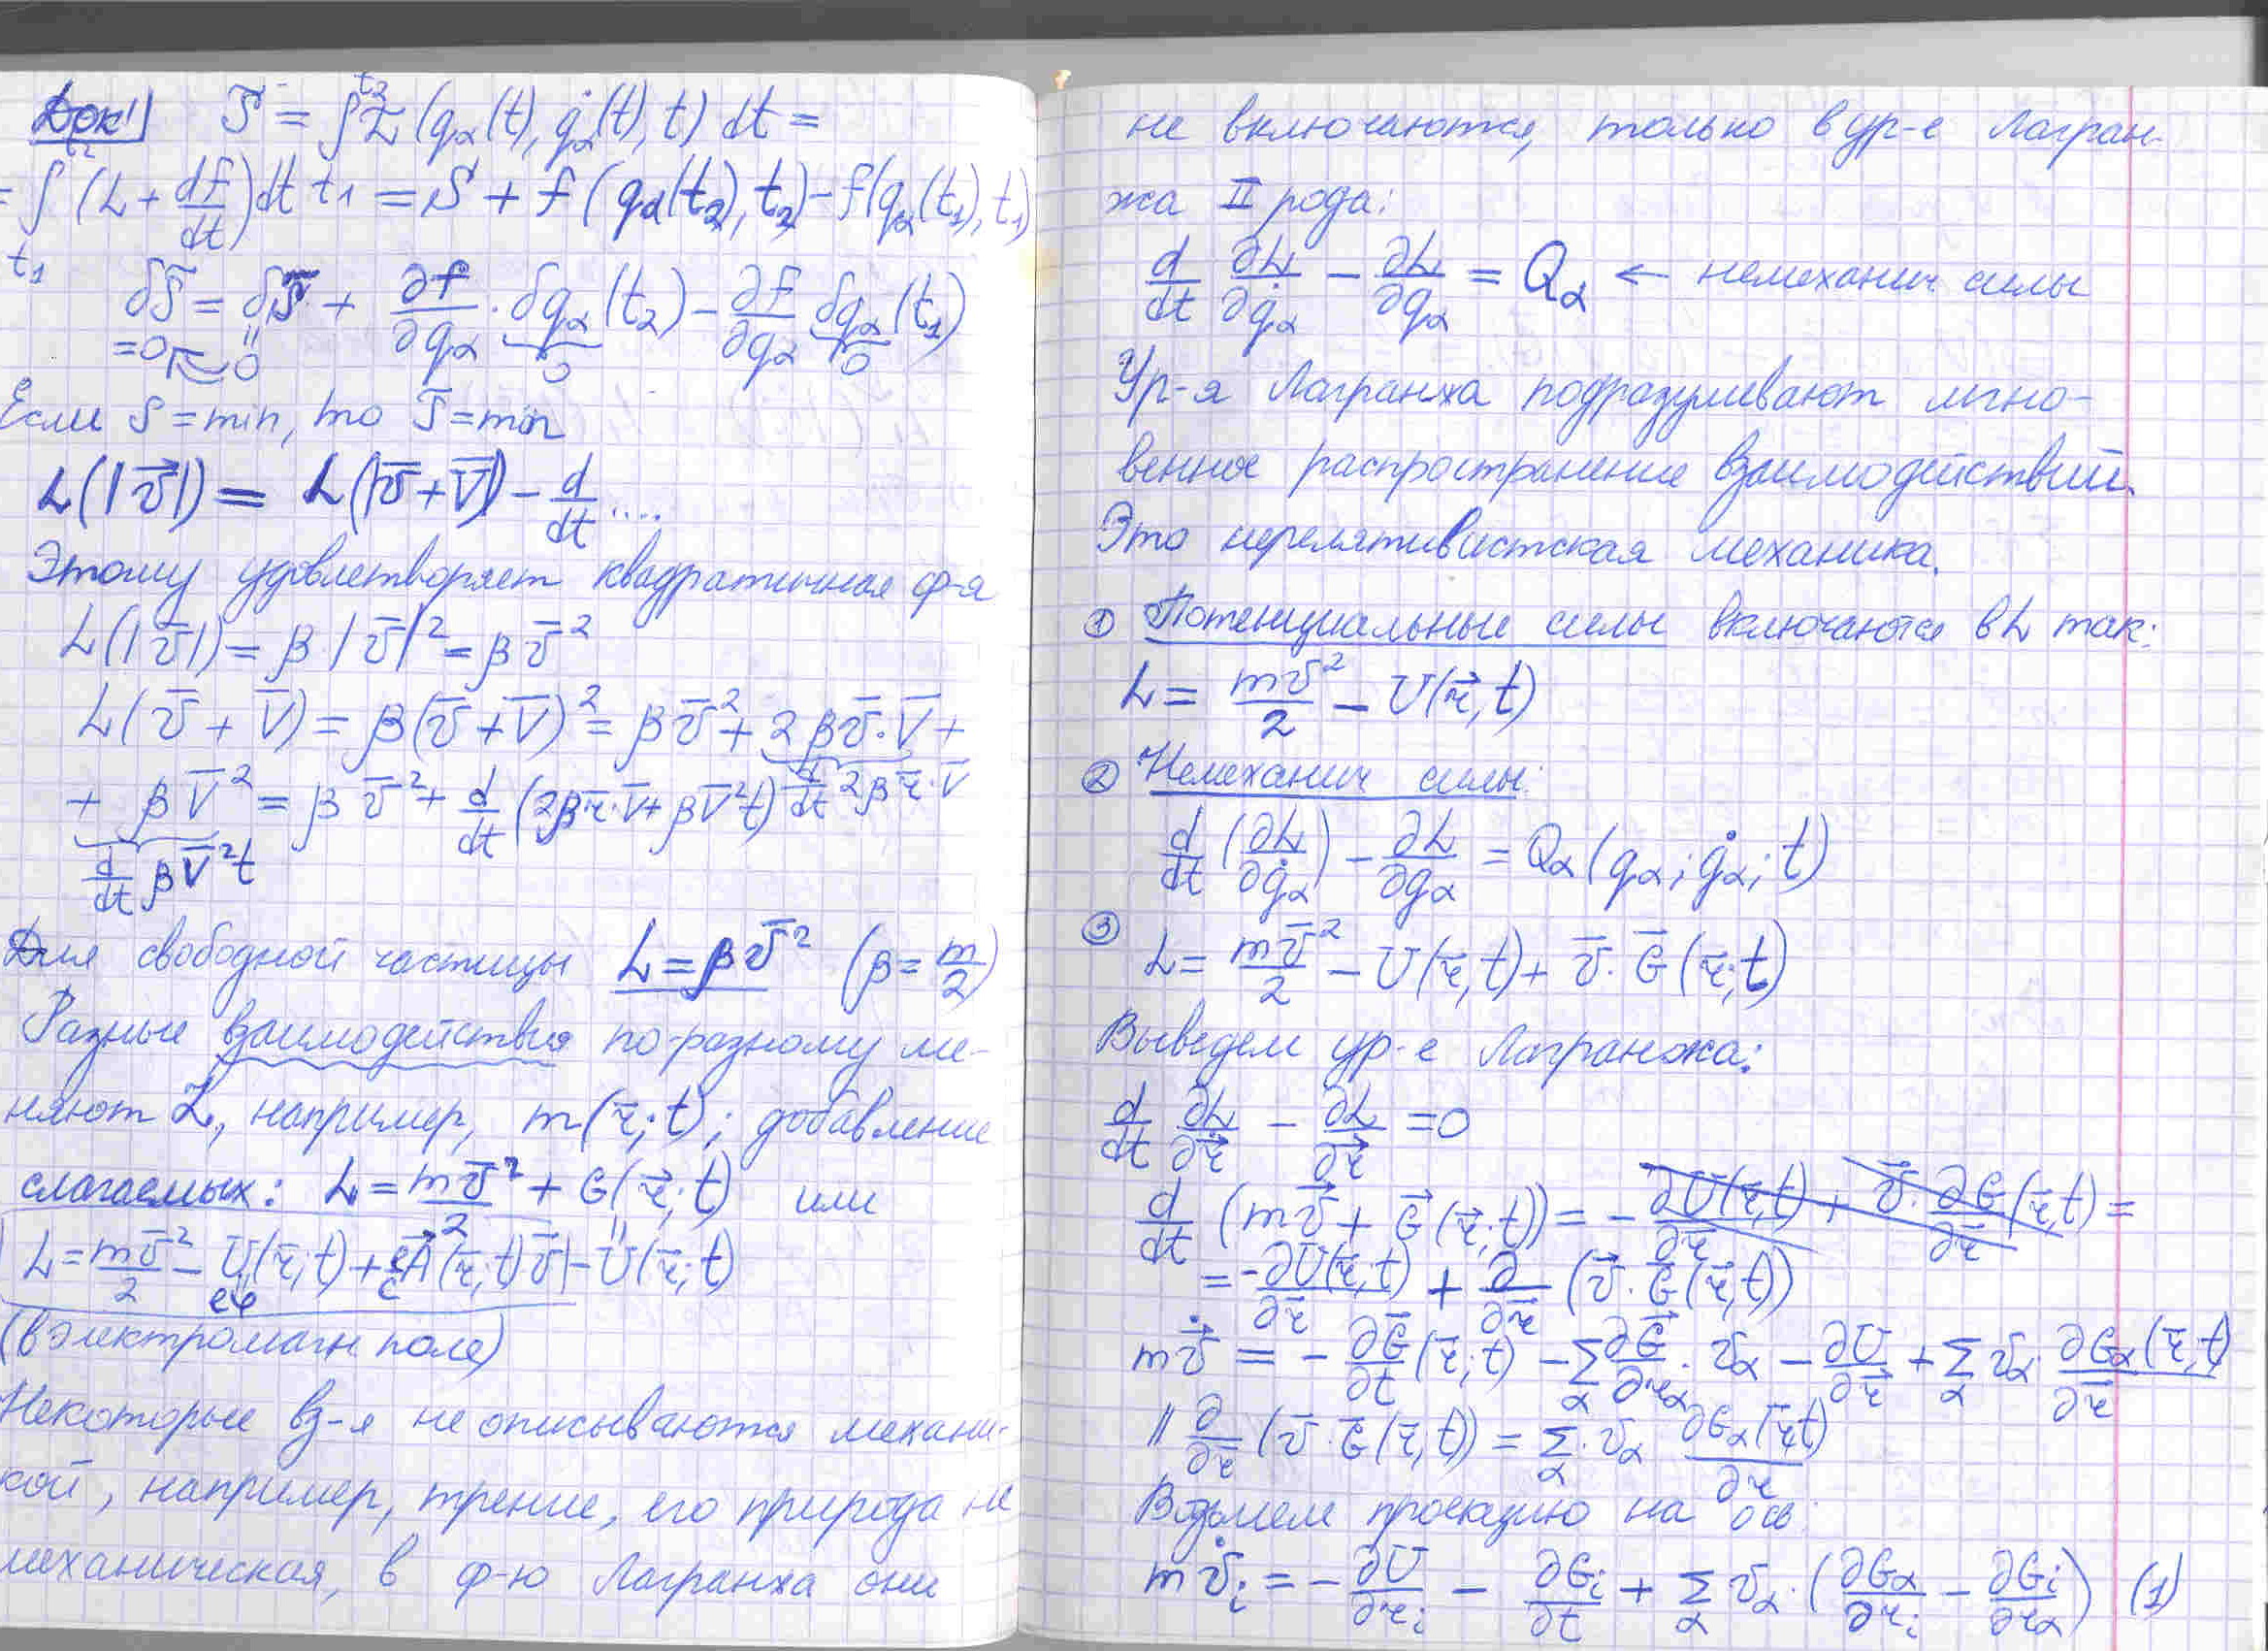 Док!] S̃ = ∫_{t₁}^{t₂} L̃ (q_α(t), q̇_α(t), t) dt =
= ∫_{t₁}^{t₂} (L + df/dt) dt = S + f(q_α(t₂), t₂) − f(q_α(t₁), t₁)
δS̃ = δS + ∂f/∂q_α · δq_α(t₂) − ∂f/∂q_α δq_α(t₁)
=0 0 0 0
Если S = min, то S̃ = min
L(|v⃗|) = L(|v̄ + V̄|) − d/dt ....
Этому удовлетворяет квадратичная ф-я
L(|v̄|) = β·|v̄|² = βv̄²
L(v̄ + V̄) = β(v̄ + V̄)² = βv̄² + 2βv̄·V̄ +
d/dt 2βr̄·V̄
+ βV̄² = βv̄² + d/dt (2βr̄·V̄ + βV̄²t)
d/dt βV̄²t
Для свободной частицы L = βv̄² (β = m/2)
Разные взаимодействия по-разному ме-
няют L, например, m(r̄; t); добавление
слагаемых: L = mv̄²/2 + G(r⃗; t) или
−U(r̄; t)
L = mv̄²/2 − U(r̄; t) + e/c A⃗(r̄; t) v̄
eφ
(в электромагн поле)
Некоторые вз-я не описываются механи-
кой, например, трение, его природа не
механическая, в ф-ю Лагранжа они
не включаются, только в ур-е Лагран-
жа II рода:
d/dt ∂L/∂q̇_α − ∂L/∂q_α = Q_α ← немеханич силы
Ур-я Лагранжа подразумевают мгно-
венное распространение взаимодействий.
Это нерелятивистская механика.
① Потенциальные силы включаются в L так:
L = mv̄²/2 − U(r⃗, t)
② Немеханич силы:
d/dt (∂L/∂q̇_α) − ∂L/∂q_α = Q_α (q_α; q̇_α; t)
③ L = mv̄²/2 − U(r̄, t) + v̄·Ḡ(r̄; t)
Выведем ур-е Лагранжа:
d/dt ∂L/∂r⃗̇ − ∂L/∂r⃗ = 0
d/dt (mv⃗ + G⃗(r̄; t)) = − ∂U(r̄, t)/∂r̄ + v⃗·∂G(r̄, t)/∂r̄ =
= −∂U(r̄, t)/∂r̄ + ∂/∂r̄ (v⃗·G⃗(r̄, t))
mv⃗̇ = − ∂G⃗/∂t (r̄; t) − Σ_α ∂G⃗/∂r_α · v_α − ∂U/∂r⃗ + Σ_α v_α · ∂G_α(r̄, t)/∂r̄
|| ∂/∂r̄ (v̄·Ḡ(r̄, t)) = Σ_α · v_α ∂G_α(r̄, t)/∂r̄
Возьмем проекцию на ось:
mv̇_i = − ∂U/∂r_i − ∂G_i/∂t + Σ_α v_α · (∂G_α/∂r_i − ∂G_i/∂r_α) (1)